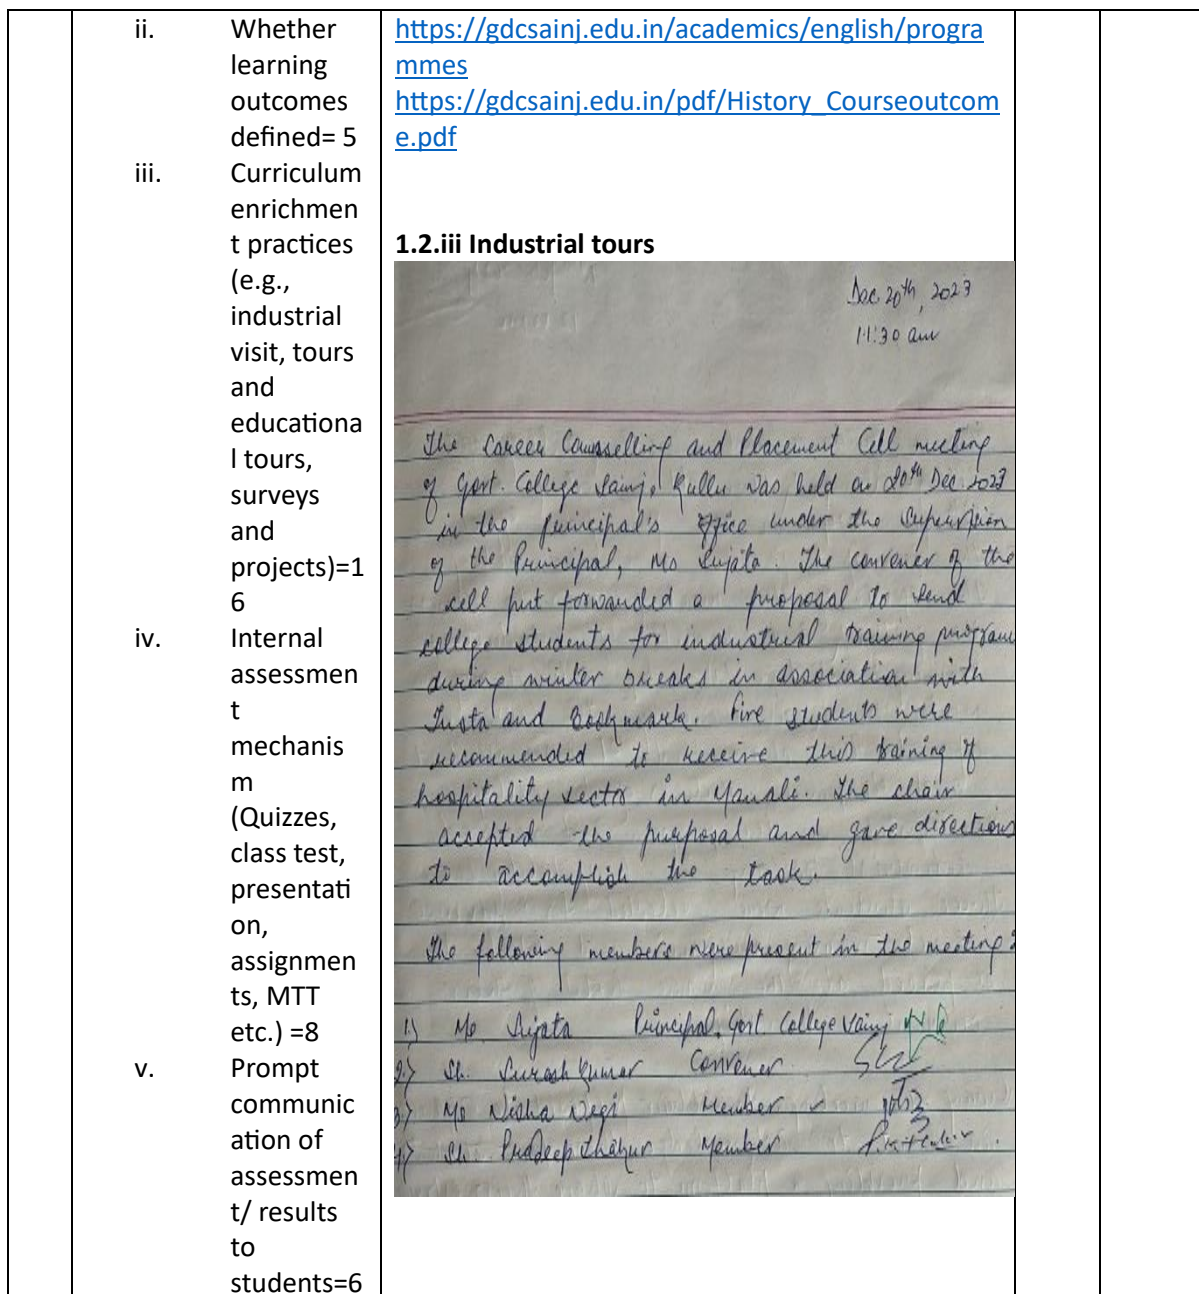 ii. Whether
learning
outcomes
defined= 5
iii. Curriculum
enrichmen
t practices
(e.g.,
industrial
visit, tours
and
educationa
l tours,
surveys
and
projects)=1
6
iv. Internal
assessmen
t
mechanis
m
(Quizzes,
class test,
presentati
on,
assignmen
ts, MTT
etc.) =8
v. Prompt
communic
ation of
assessmen
t/ results
to
students=6
https://gdcsainj.edu.in/academics/english/progra
mmes
https://gdcsainj.edu.in/pdf/History_Courseoutcom
e.pdf
1.2.iii Industrial tours
Dec 20th, 2023
11:30 am
The Career Counselling and Placement Cell meeting
of Govt. College Sainj, Kullu was held on 20th Dec 2023
in the Principal's Office under the Supervision
of the Principal, Ms Sujata. The convener of the
cell put forwarded a proposal to send
college students for industrial training program
during winter breaks in association with
and Bookmark. Five students were
recommended to receive this training of
hospitality sector in Manali. The chair
accepted the purposal and gave directions
to accomplish the task.
The following members were present in the meeting
1.) Ms Sujata Principal, Govt College Sainj
2.) Sh. Suresh Kumar Convener
3.) Ms Nisha Negi Member
4.) Sh. Pradeep Thakur Member